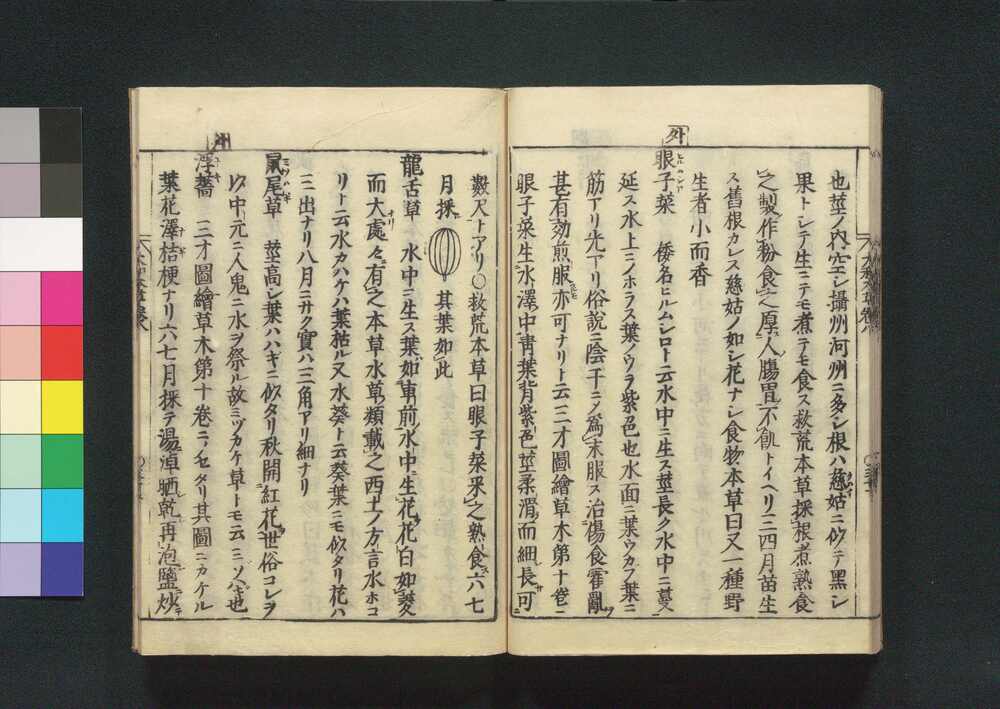 也莖ノ内空シ攝州河州ニ多シ根ハ慈姑ニ似テ黒シ
果トシテ生ニテモ煮テモ食ス救荒本草採根煮熟食
之製作粉食之厚人腸胃不飢トイヘリ三四月苗生
ス舊根カレス慈姑ノ如シ花ナシ食物本草曰又一種野
生者小而香
外
眼子菜 倭名ヒルムシロト云水中ニ生ス莖長ク水中ニ蔓
延ス水上ニノホラス葉ノウラ紫色也水面ニ葉ウカフ葉ニ
筋アリ光アリ俗説ニ陰干ニメ爲末服ス治傷食霍亂
甚有効煎服亦可ナリト云三才圖繪草木第十巻ニ
眼子菜生水澤中靑葉背紫色莖柔滑而細長可
數尺トアリ〇救荒本草曰眼子菜采之熟食六七
月採 其葉如此
龍舌草 水中ニ生ス葉如車前水中ニ生花花白如葵
而大處々有之本草水草類載之西土ノ方言水ホコ
リト云水カハケハ葉枯ル又水葵ト云葵葉ニモ似タリ花ハ
三出ナリ八月ニサク實ハ三角アリ細ナリ
鼠尾草 莖高シ葉ハハギニ似タリ秋開紅花世俗コレヲ
以中元ニ人鬼ニ水ヲ祭ル故ミヅカケ草トモ云ミソハギ也
外
浮薔 三才圖繪草木第十卷ニノセタリ其圖ニカケル
葉花澤桔梗ナリ六七月採テ湯淖晒乾再泡鹽炒